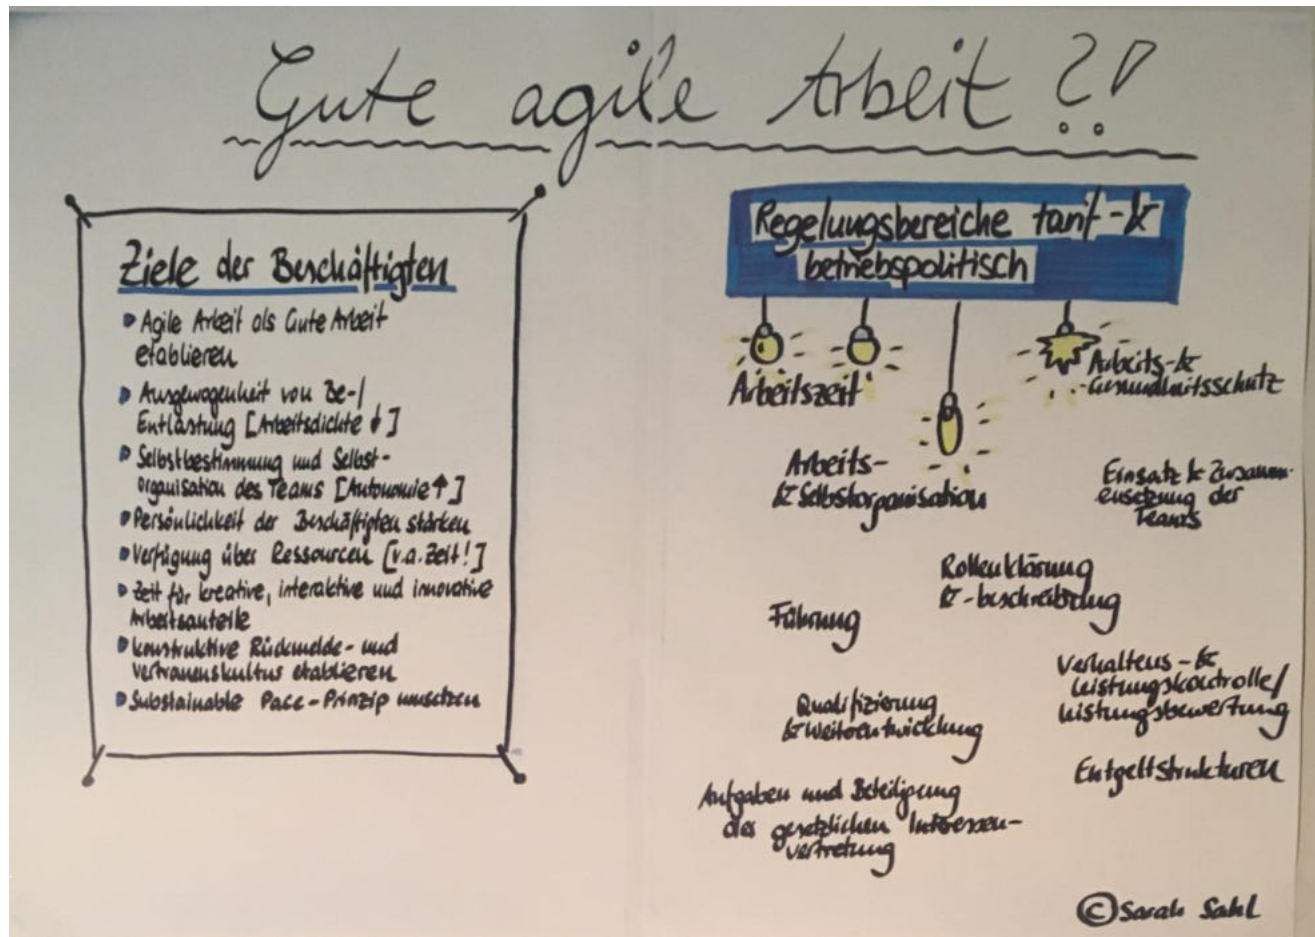 Gute agile Arbeit?!
Ziele der Beschäftigten
Agile Arbeit als Gute Arbeit
etablieren
Ausgewogenheit von Be-/
Entlastung [Arbeitsdichte ↓]
Selbstbestimmung und Selbst-
organisation des Teams [Autonomie ↑]
Persönlichkeit der Beschäftigten stärken
Verfügung über Ressourcen [v.a. Zeit!]
Zeit für kreative, interaktive und innovative
Arbeitsanteile
konstruktive Rückmelde- und
Vertrauenskultur etablieren
Substainable Pace-Prinzip umsetzen
Regelungsbereiche tarif- &
betriebspolitisch
Arbeitszeit
Arbeits- &
Gesundheitsschutz
Arbeits-
& Selbstorganisation
Einsatz & Zusamm-
ensetzung der
Teams
Rollenklärung
& -beschreibung
Führung
Verhaltens- &
Leistungskontrolle/
Leistungsbewertung
Qualifizierung
& Weiterentwicklung
Entgeltstrukturen
Aufgaben und Beteiligung
der gesetzlichen Interessen-
vertretung
© Sarah Sahl